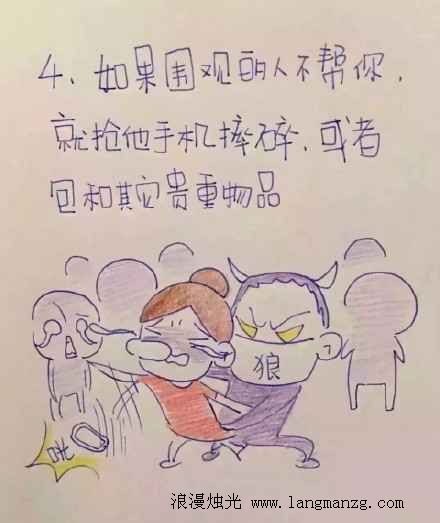 4、如果围观的人不帮你，
就抢他手机摔碎，或者
包和其它贵重物品
狼
咣
浪漫烛光 www.langmanzg.com